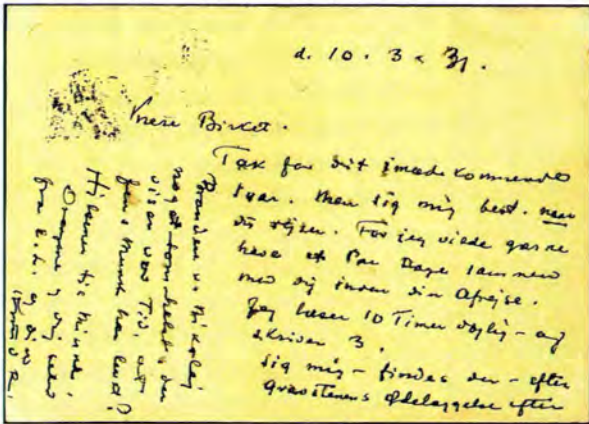 d. 10. 3 . 31.
Kære Birket.
Tak for dit imødekommende
Svar. Men sig mig best. naar
du rejser. For jeg vilde gærne
have et Par Dage sammen
med dig inden din Afrejse.
Jeg læser 10 Timer daglig – og
skriver 3.
Sig mig – findes der – efter
Gravstenens Ødelæggelse efter
Branden i Nikolaj
noget somhelst, der
viser vor Tid, at
Jens Munk har levd?
Hilsener til Minde,
Drengene og dig selv
fra